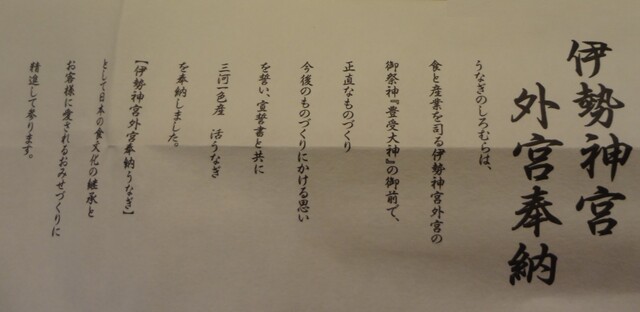 伊勢神宮
外宮奉納
うなぎのしろむらは、
食と産業を司る伊勢神宮外宮の
御祭神『豊受大神』の御前で、
正直なものづくり
今後のものづくりにかける思い
を誓い、宣誓書と共に
三河一色産 活うなぎ
を奉納しました。
【伊勢神宮外宮奉納うなぎ】
として日本の食文化の継承と
お客様に愛されるおみせづくりに
精進して参ります。